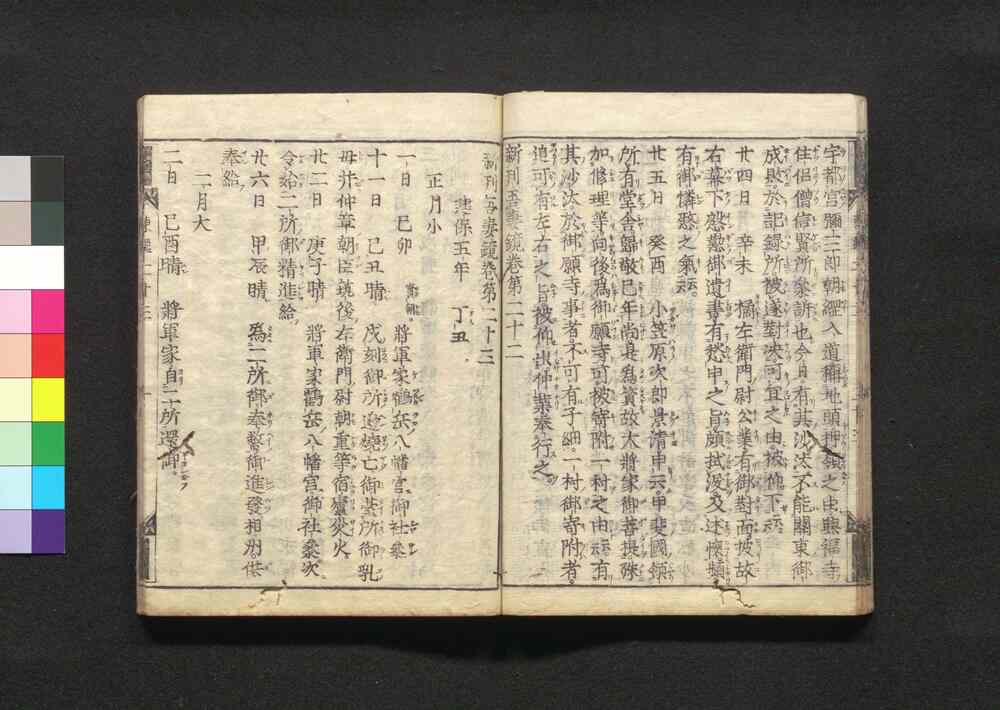 宇都宮彌三郎朝經入道稱地頭押領之由興福寺
住侶僧信賢所參訴也今日有其沙汰不能關東御
成敗於記録所被遂對决可宜之由被仰下云云
廿四日　辛未　橘左衛門尉公業有御對面披故
右幕下慇懃御遺書有愁申之旨頗拭涙及述懷頻
有御憐愍之氣云云
廿五日　癸酉　小笠原次郎景清申云甲斐國領
所有堂舎歸敬已年尚是為資故大將家御菩提殊
加修理等向後為御願寺可被寄附一村之由云云有
其沙汰於御願寺事者不可有子細一村御寄附者
追可有左右之旨被仰出仲業奉行之
新刊吾妻鏡卷第二十二
新刊吾妻鏡卷第二十三
建保五年　丁丑
正月小
一日　己卯　將軍家鶴岳八幡宮御社參
十一日　己丑晴　戌刻御所邊燒亡御臺所御乳
母并仲章朝臣筑後左衛門尉朝重等宿廬災火
廿二日　庚子晴　將軍家鶴岳八幡宮御社參次
令始二所御精進給
廿六日　甲辰晴　為二所御奉幣御進發相州供
奉給
二月大
二日　己酉晴　將軍家自二所還御